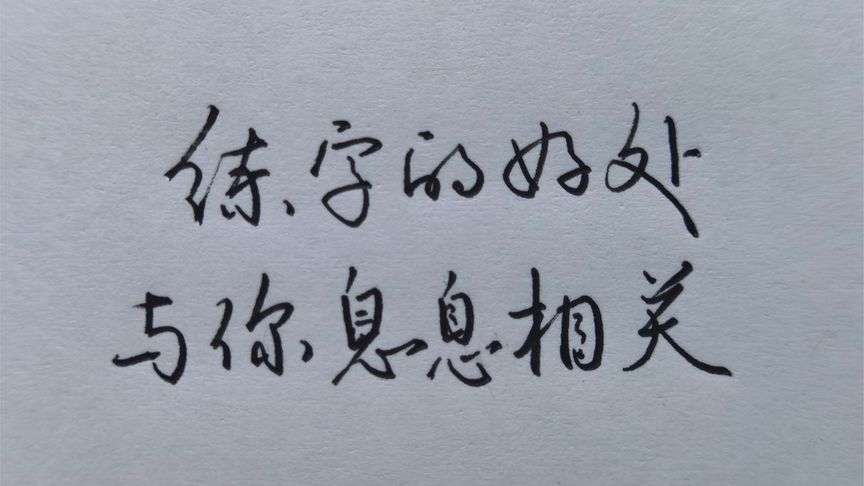 练字的好处
与你息息相关